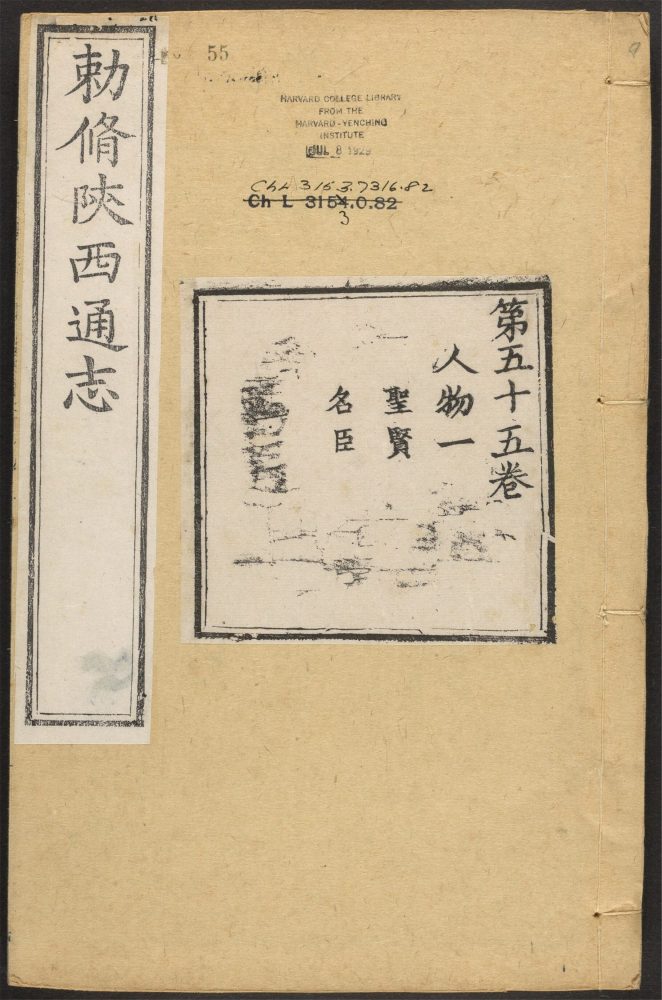 勅脩陝西通志
55
HARVARD COLLEGE LIBRARY
FROM THE
HARVARD-YENCHING
INSTITUTE
JUL 8 1929
ChL 3153.7316.82
Ch L 3154.0.82
3
第五十五卷
人物一
聖賢
名臣